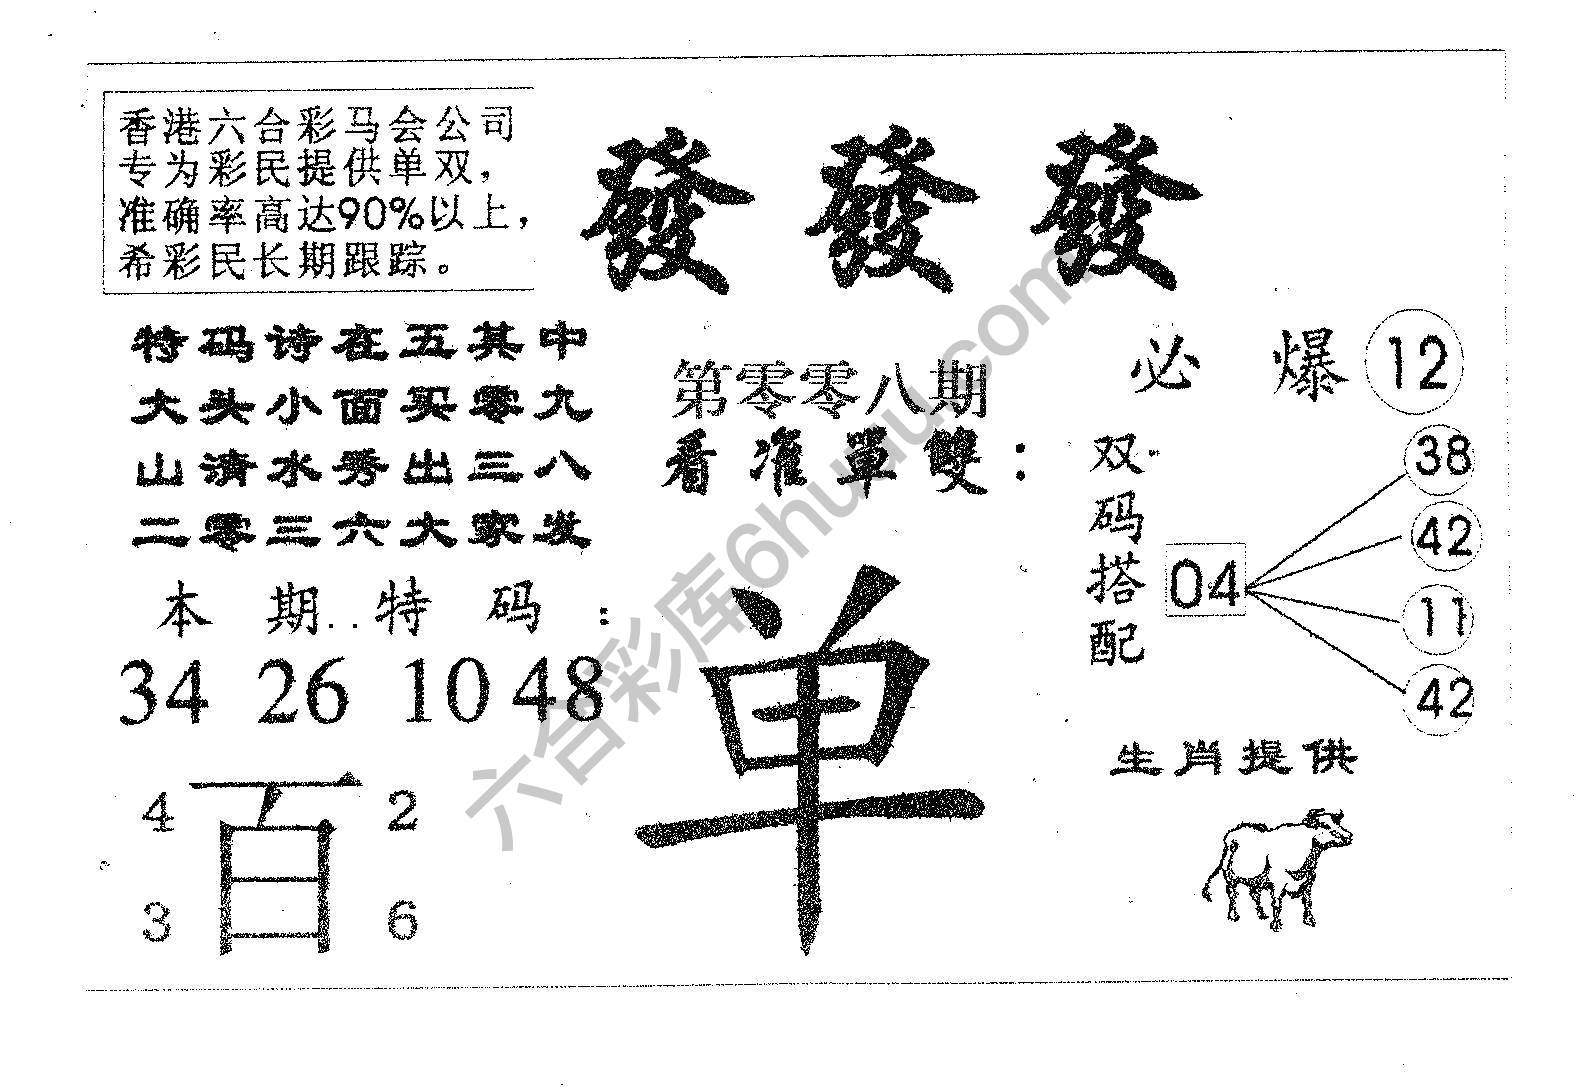 香港六合彩马会公司
专为彩民提供单双，
准确率高达90%以上，
希彩民长期跟踪。
發發發
特码诗在五其中
大头小面买零九
山清水秀出三八
二零三六大家发
第零零八期
看准單雙：
单
本期..特码：
34 26 10 48
4 百 2
3 6
必爆 12
双码搭配
04
38
42
11
42
生肖提供
六合彩库6huuu.com